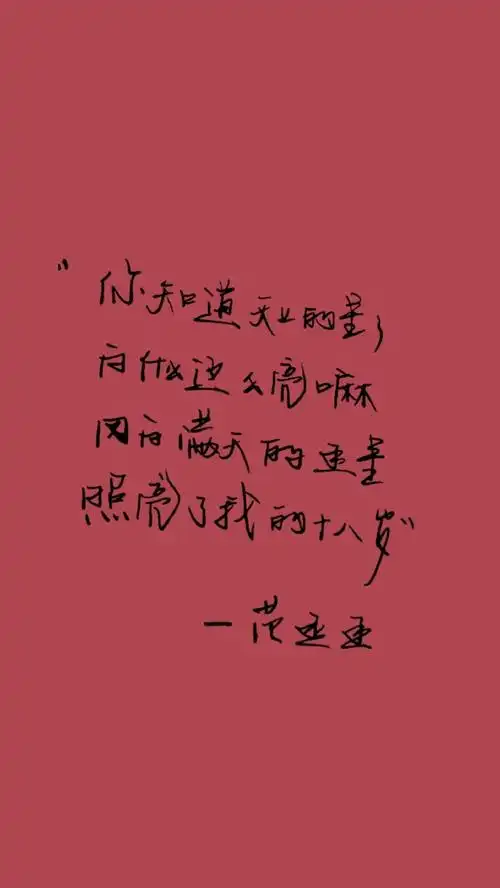 “你知道天上的星星
为什么这么亮嘛
因为满天的丞星
照亮了我的十八岁”
—范丞丞